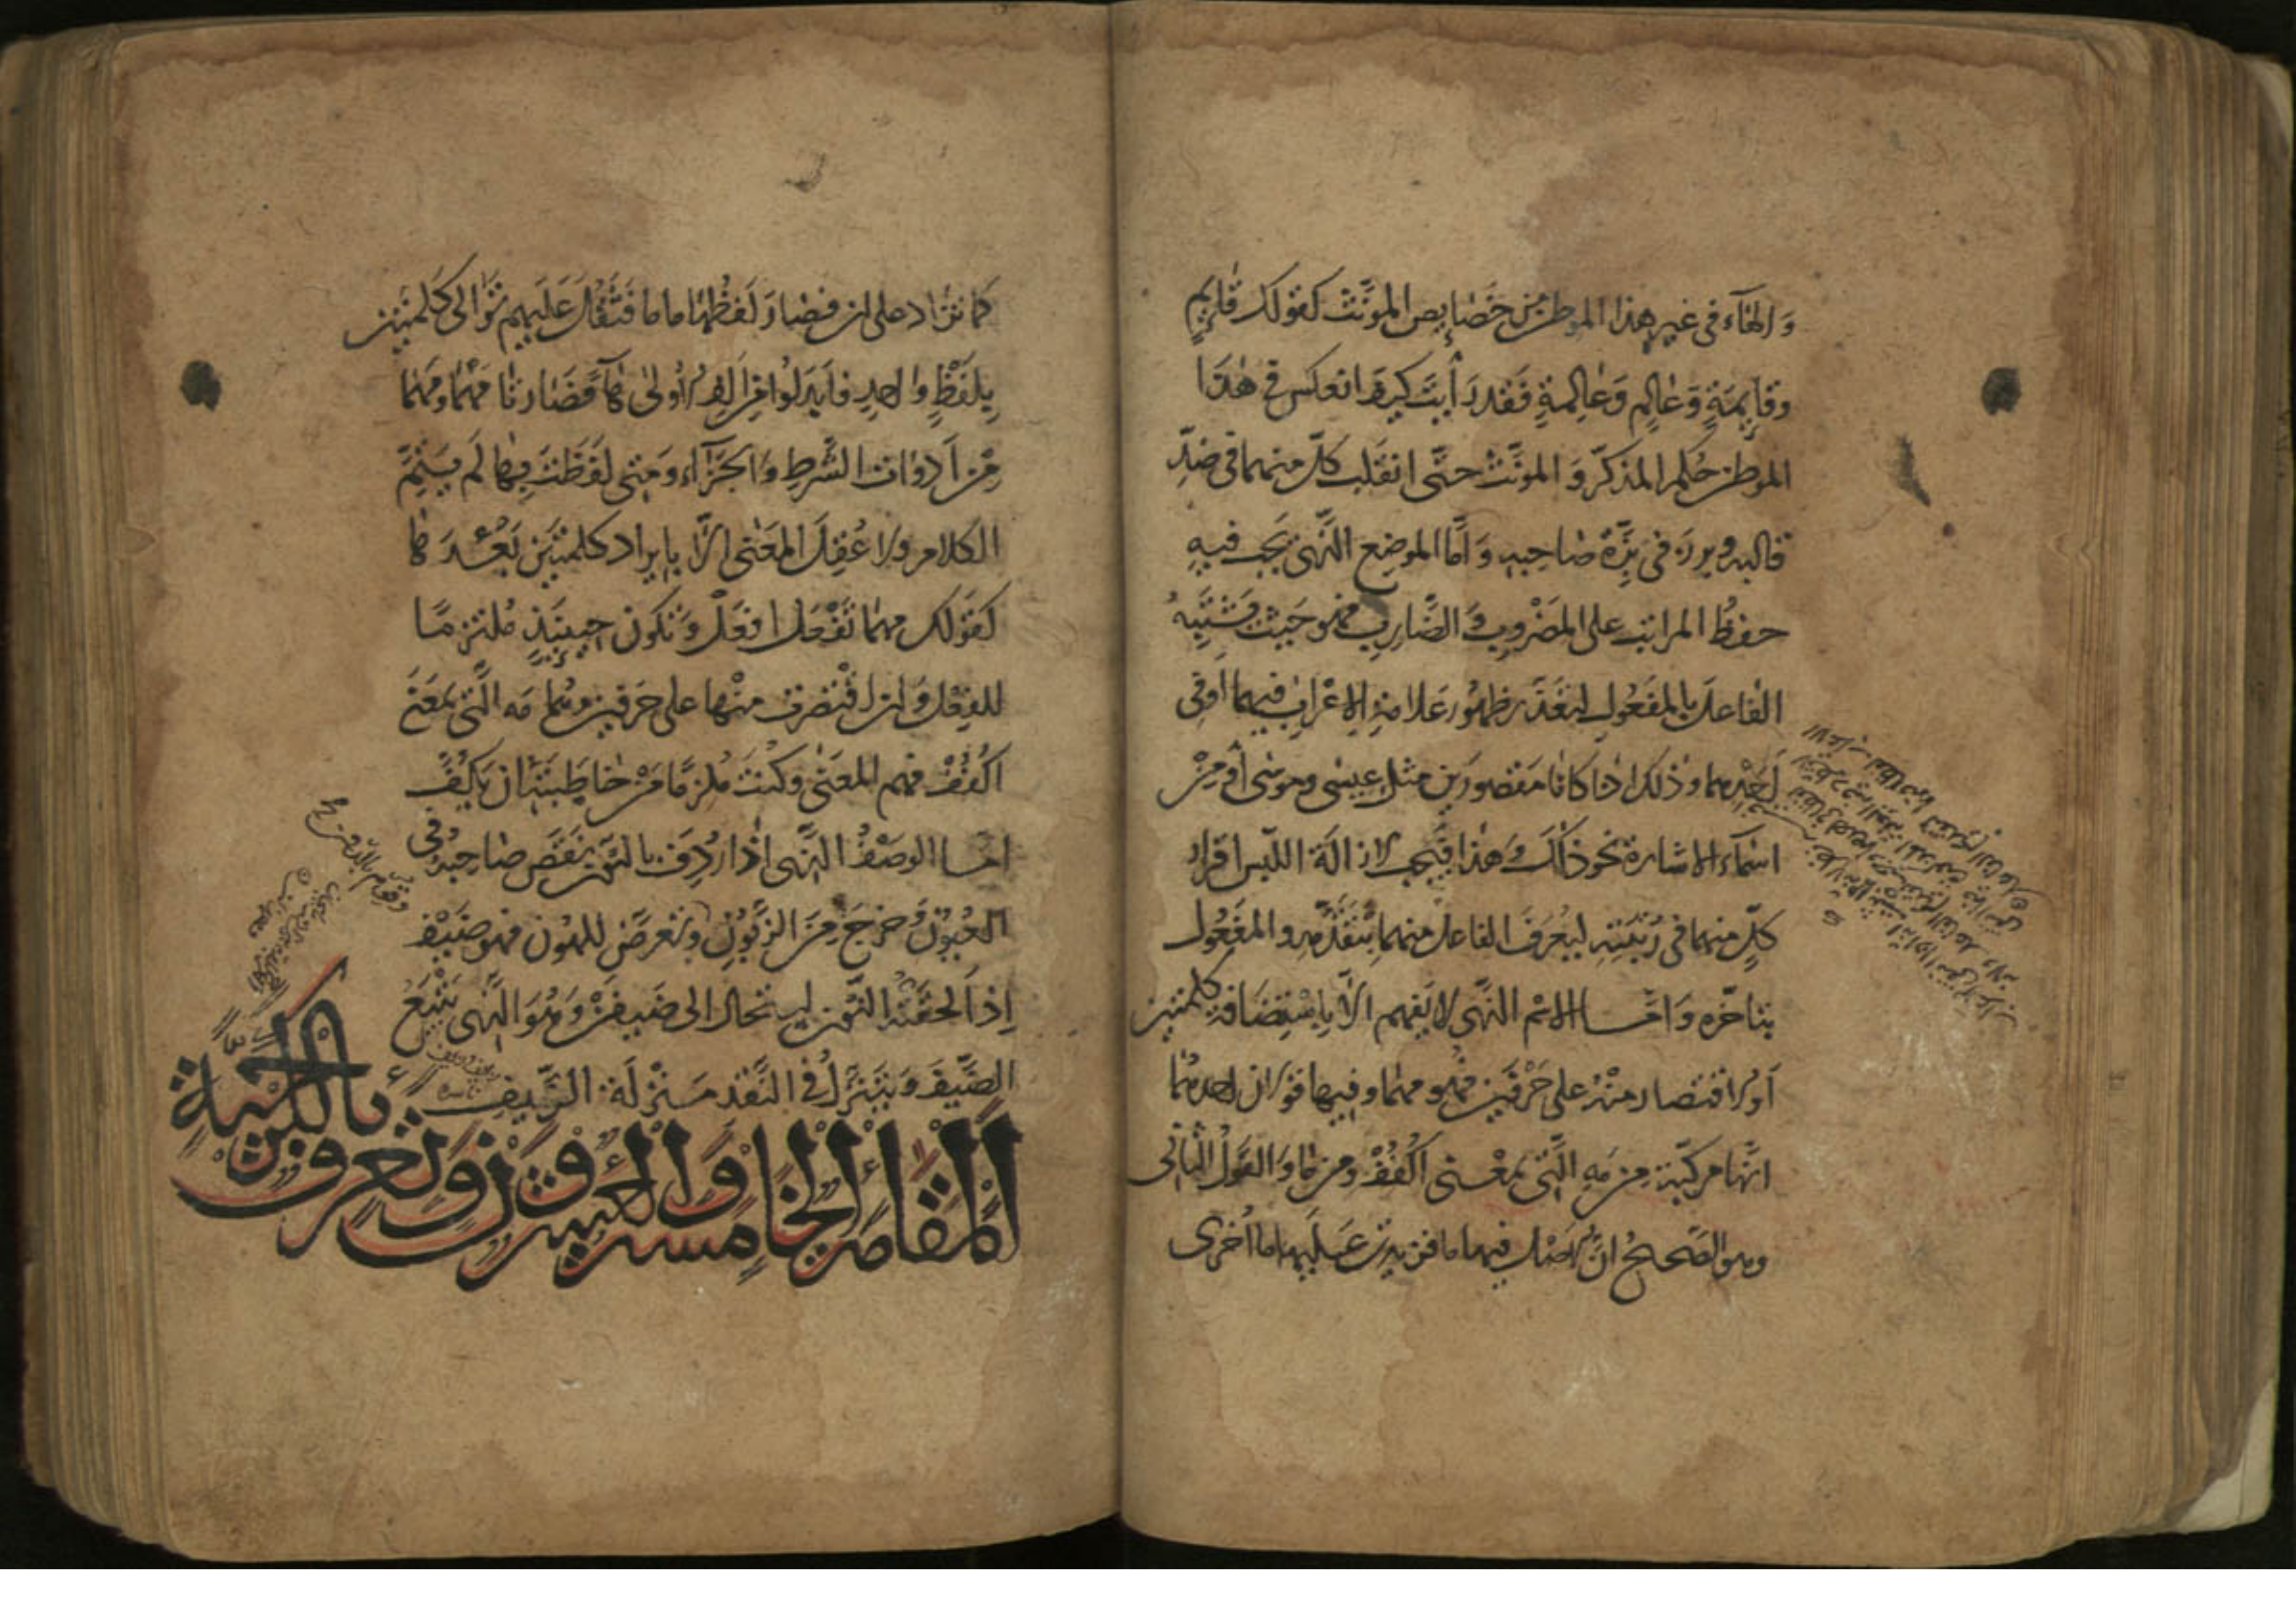 والهاء في غير هذا الموطن من خصايص المؤنث كقولك قايم
وقايمة وعالم وعالمة فقد رأيت كيف انعكس في هذا
الموطن حكم المذكر والمؤنث حتى انقلب كل منهما في ضد
قالبه وبرز في بزة صاحبه وأما الموضع الذي يجب فيه
حفظ المراتب على المضروب والضارب فهو حيث يشتبه
الفاعل بالمفعول لتعذر ظهور علامة الاعراب فيهما أو في
أحدهما وذلك اذا كانا مقصورين مثل عيسى وموسى أو من
اسماء الاشارة نحو ذاك وهذا فيجب لازالة اللبس اقرار
كل منهما في رتبته ليعرف الفاعل منهما بتقدمه والمفعول
بتاخره وأما الاسم الذي لا يفهم الا باستضافة كلمتين
أو الاقتصار منه على حرفين فهو مهما وفيها قولان احدهما
انها مركبة من مه التي بمعنى اكفف ومن ما والقول الثاني
وهو الصحيح ان الاصل فيها ما فزيدت عليها ما أخرى
كما تزاد على ان فصار لفظها ماما فثقل عليهم توالي كلمتين
بلفظ واحد فأبدلوا من الف الاولى هاء فصارتا مهما ومهما
من أدوات الشرط والجزاء ومتى لفظت بها لم يتم
الكلام ولا عقل المعنى الا بايراد كلمتين بعدها
كقولك مهما تفعل افعل وتكون حينئذ ملتزما
للفعل وان اقتصرت منها على حرفين وهما مه التي بمعنى
اكفف فهم المعنى وكنت ملزما من خاطبته ان يكف
اما الوصف الذي اذا اردف بالنون نقص صاحبه في
العيون وخرج من الزبون وتعرض للهون فهو ضيف
اذا لحقته النون استحال الى ضيفن وهو الذي يتبع
الضيف ويتنزل في النقد منزلة الزيف
المقامة الخامسة والعشرون وتعرف بالكرجية